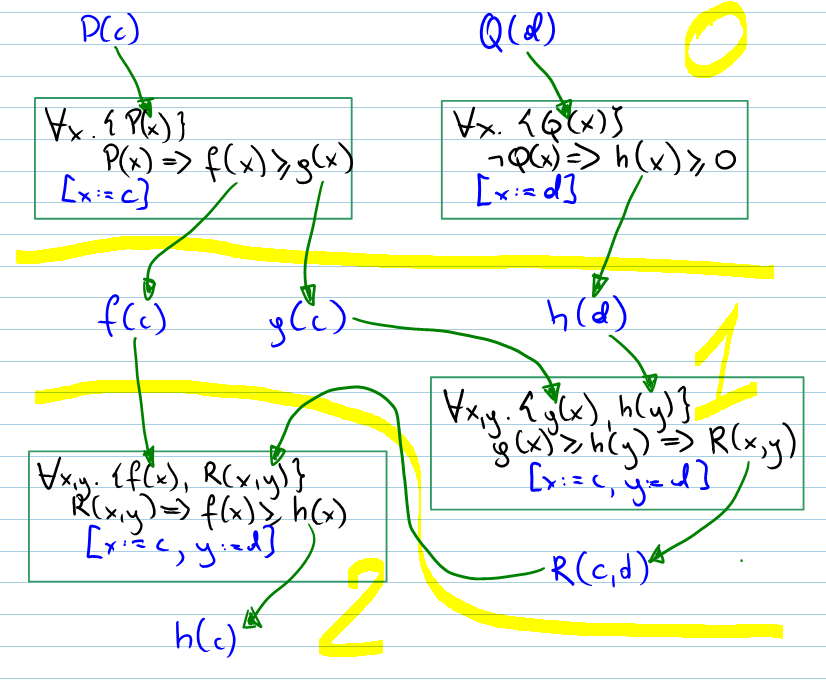 P(c)
Q(d)
0
∀x. {P(x)}
P(x) => f(x) ⩾ g(x)
[x:=c]
∀x. {Q(x)}
¬Q(x) => h(x) ⩾ 0
[x:=d]
f(c)
g(c)
h(d)
1
∀x,y. {g(x), h(y)}
g(x) ⩾ h(y) => R(x,y)
[x:=c, y:=d]
∀x,y. {f(x), R(x,y)}
R(x,y) => f(x) ⩾ h(x)
[x:=c, y:=d]
R(c,d)
2
h(c)